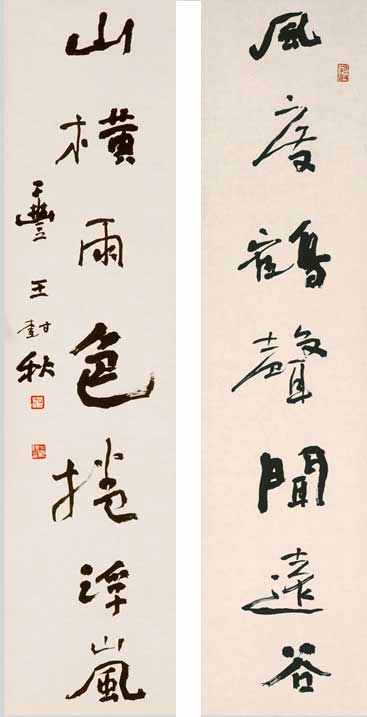 風度鶴聲聞遠谷
山橫雨色捲浮嵐
王封秋